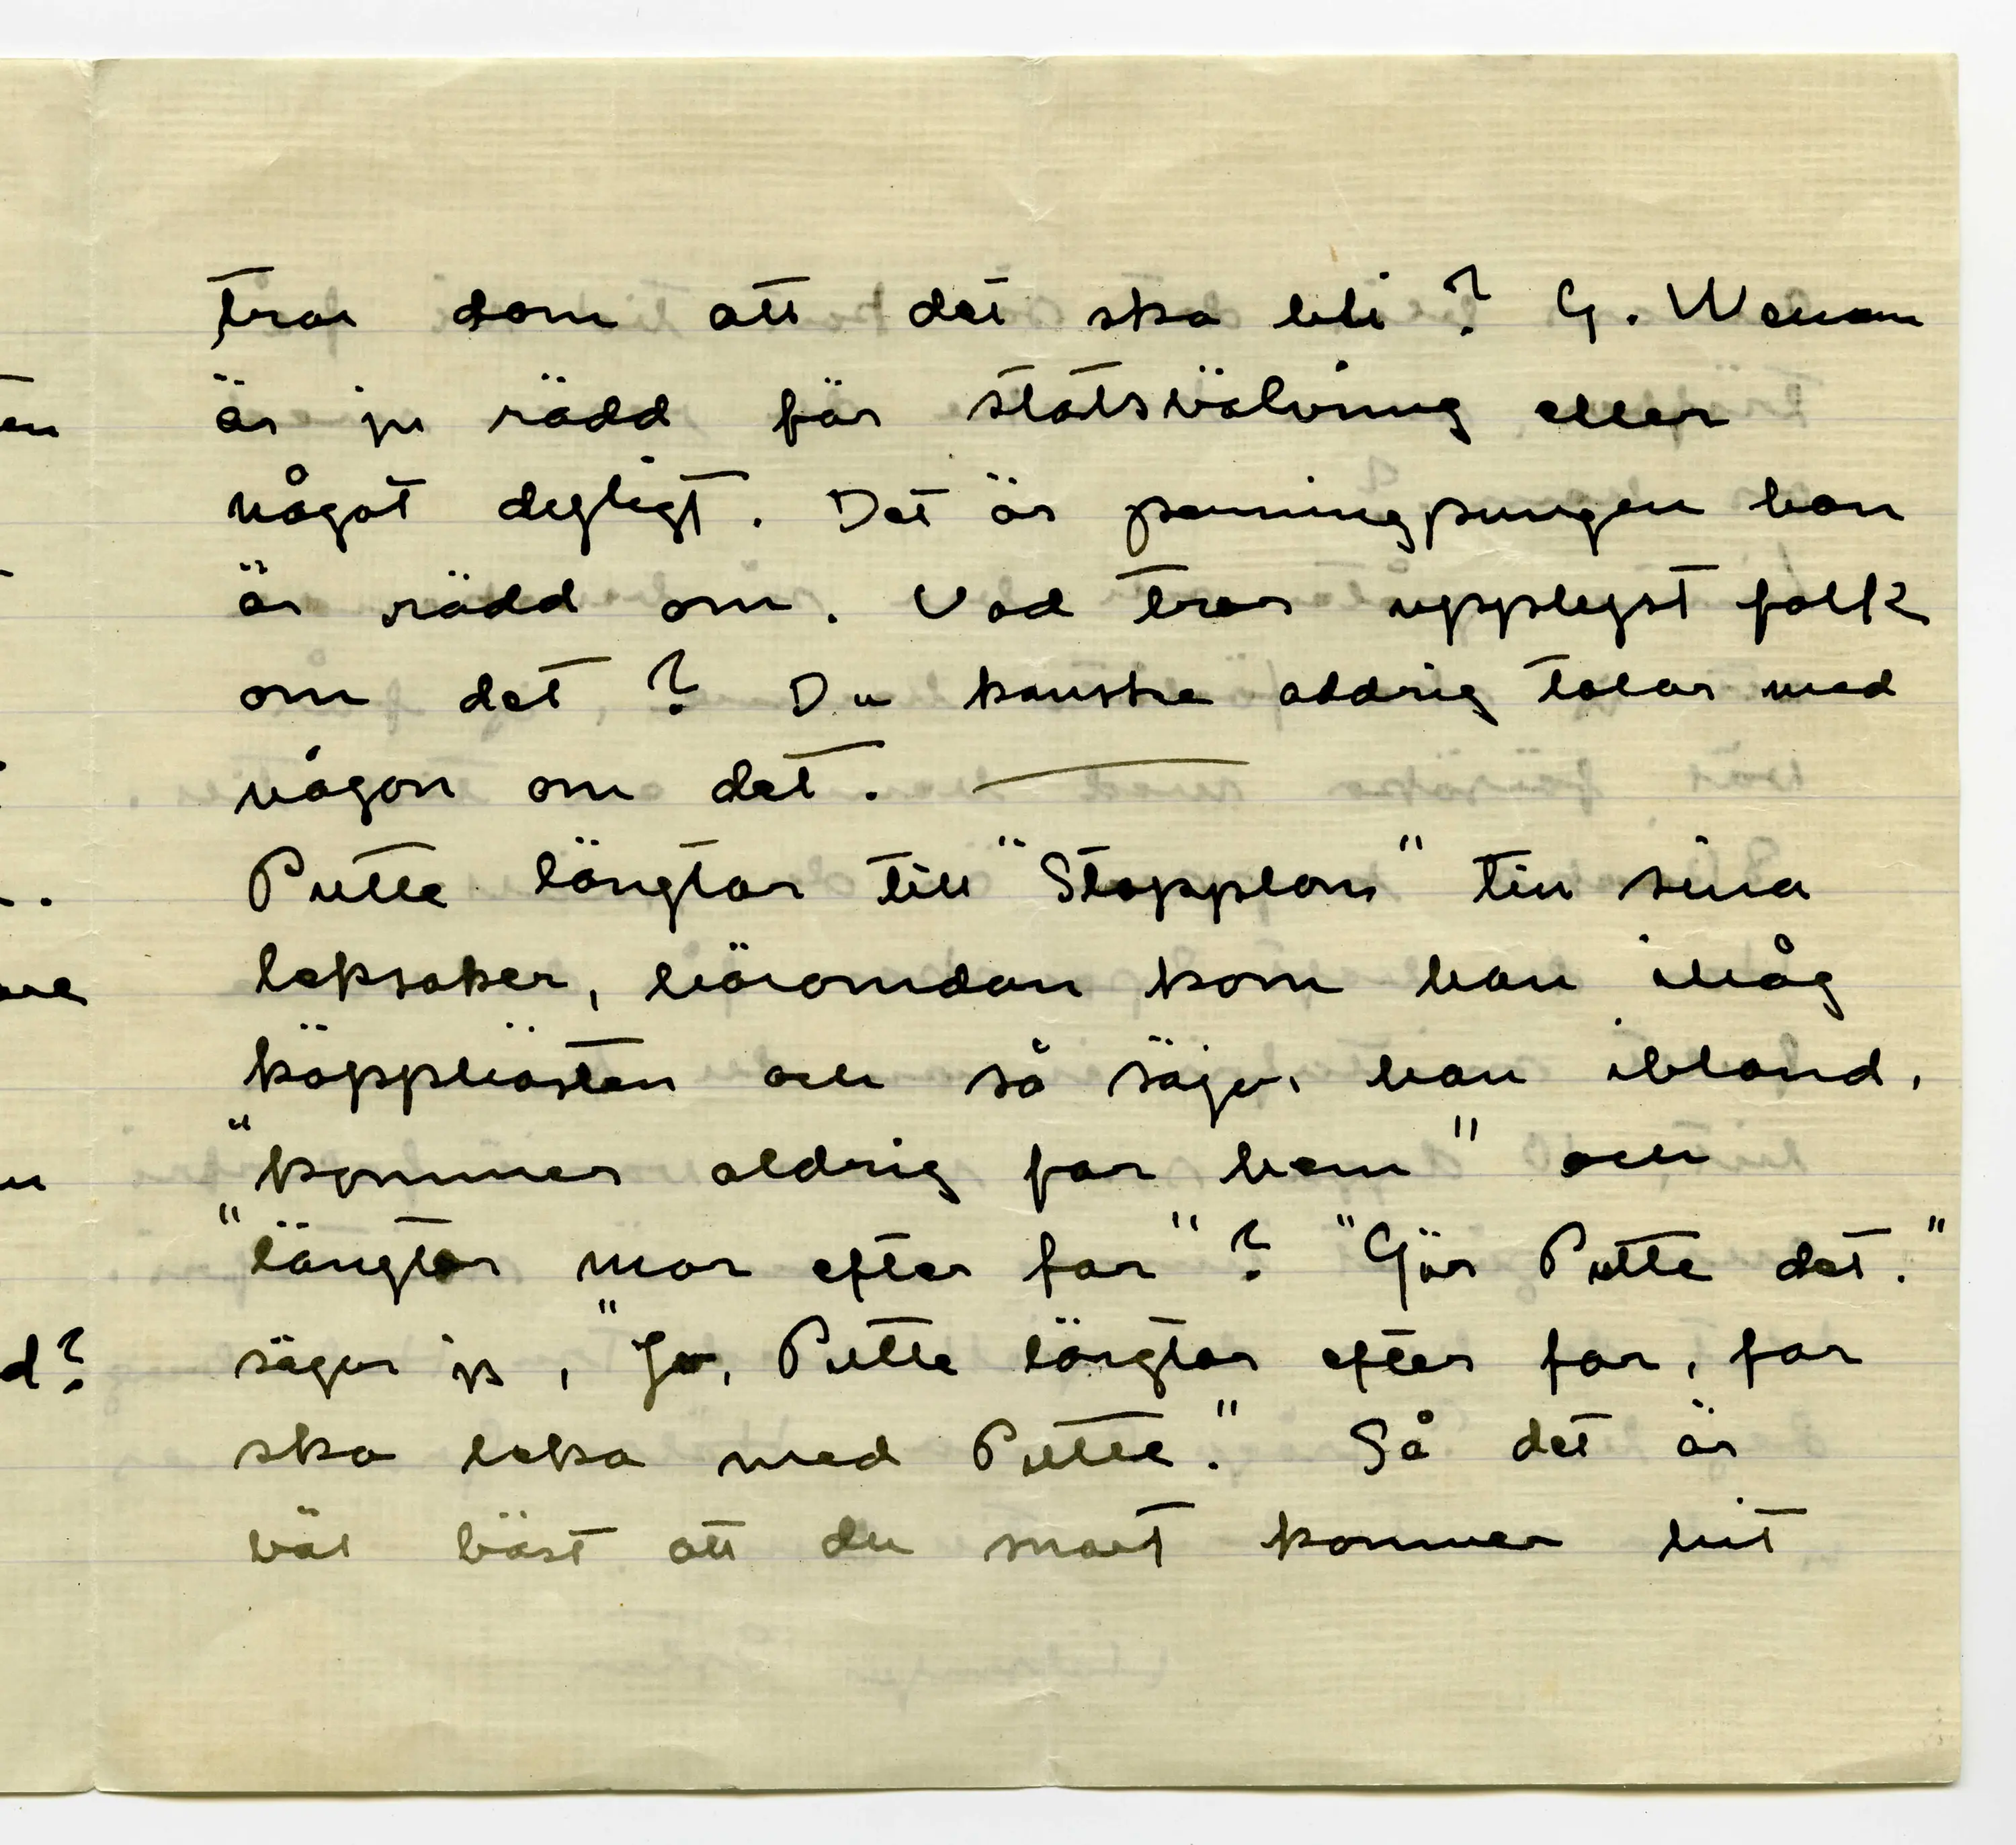 tror dom att det ska bli? G.
är ju rädd för statsvälvning eller
något dyligt. Det är penningpungen han
är rädd om. Vad tror upplyst folk
om det? Du kanske aldrig talar med
någon om det. —
Putte längtar till "Stopplom" till sina
leksaker, häromdan kom han ihåg
käpphästen och så säger han ibland,
"kommer aldrig far hem" och
"längtar mor efter far"? "Gör Putte det."
säger ja, "Jo, Putte längtar efter far, far
ska leka med Putte." Så det är
väl bäst att du snart kommer hit
en
d?